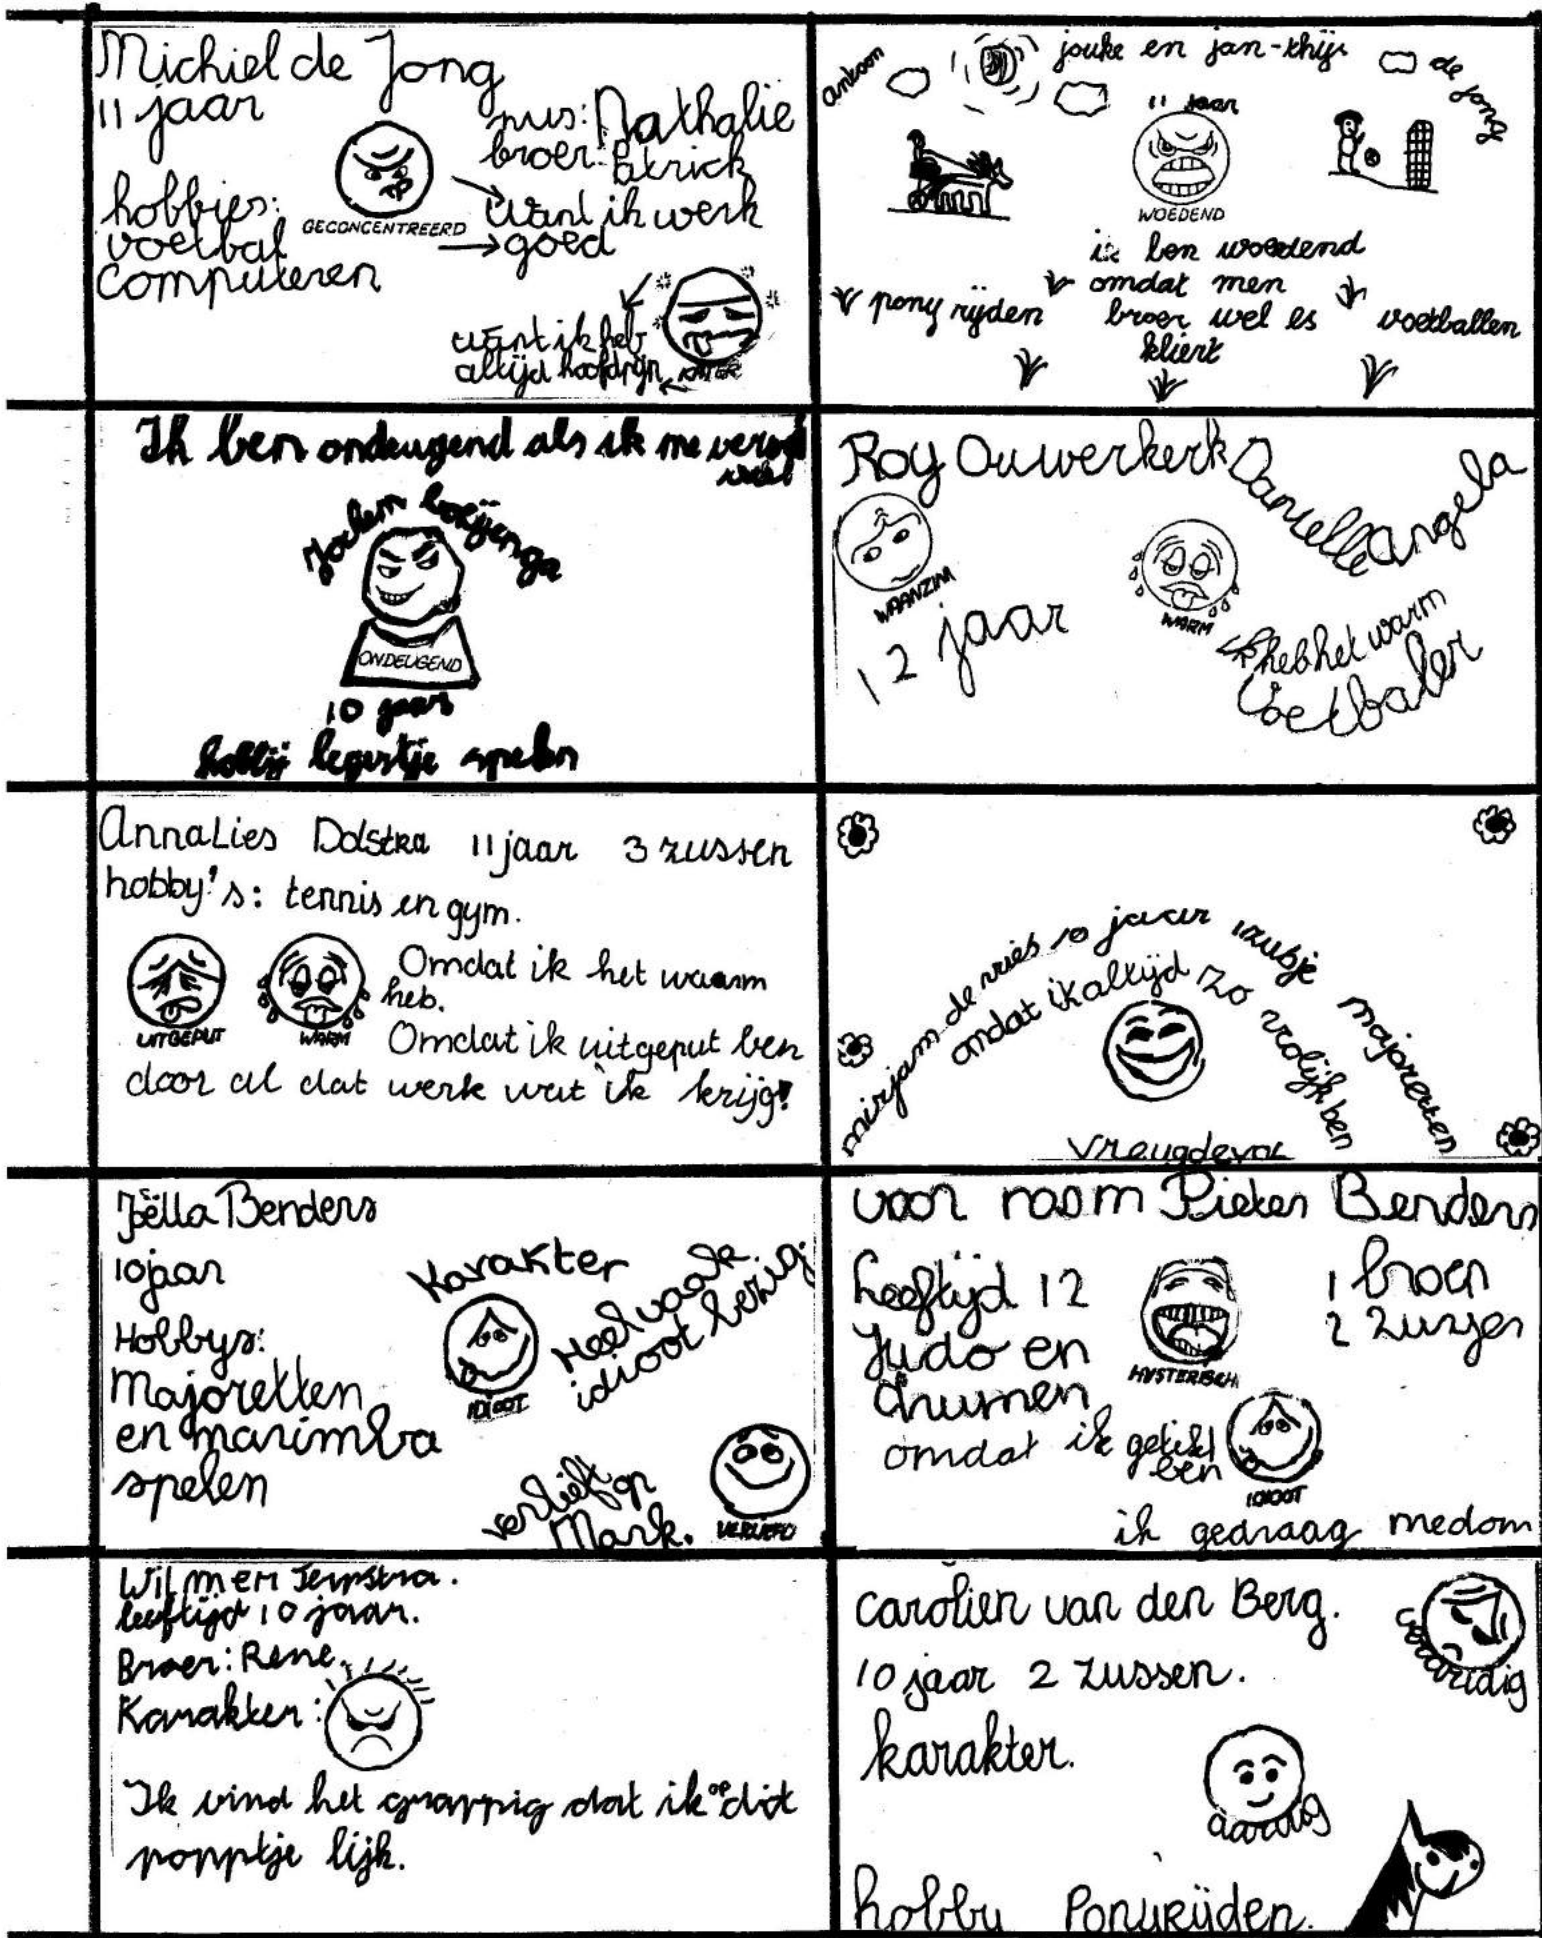 Michiel de Jong
11 jaar
zus: Nathalie
broer: Patrick
hobbies:
voetbal
computeren
GECONCENTREERD
want ik werk
goed
want ik heb
altijd hoofdpijn
KATER
jouke en jan-thijs
de jong
11 jaar
WOEDEND
ik ben woedend
omdat men
broer wel es
kliert
pony rijden
voetballen
Ik ben ondeugend als ik me verveel
Jochem
ONDEUGEND
10 jaar
hobbij legertje spelen
Roy Ouwerkerk
Danielle Angela
WAANZIN
WARM
12 jaar
ik heb het warm
Voetballer
AnnaLies Dolstra 11 jaar 3 zussen
hobby's: tennis en gym.
UITGEPUT
WARM
Omdat ik het waarm
heb.
Omdat ik uitgeput ben
door al dat werk wat ik krijg!
mirjam de vries 10 jaar 1 zusje majoretten
omdat ik altijd zo vrolijk ben
Vreugdevol
Joëlla Benders
10 jaar
Hobbys:
Majoretten
en marimba
spelen
Karakter
IDIOOT
Heel vaak
idioot bezig.
verlieft op
Mark.
VERLIEFD
voor naam Pieter Benders
leeftijd 12
Judo en
drumen
HYSTERISCH
1 broer
2 zusjes
omdat ik getikt
ben
IDIOOT
ik gedraag medom
Wilmer Terpstra.
leeftijd 10 jaar.
Broer: Rene.
Karakter:
Ik vind het grappig dat ik op dit
popptje lijk.
Carolien van den Berg.
10 jaar 2 zussen.
karakter.
aardig
hobby Ponyrijden.